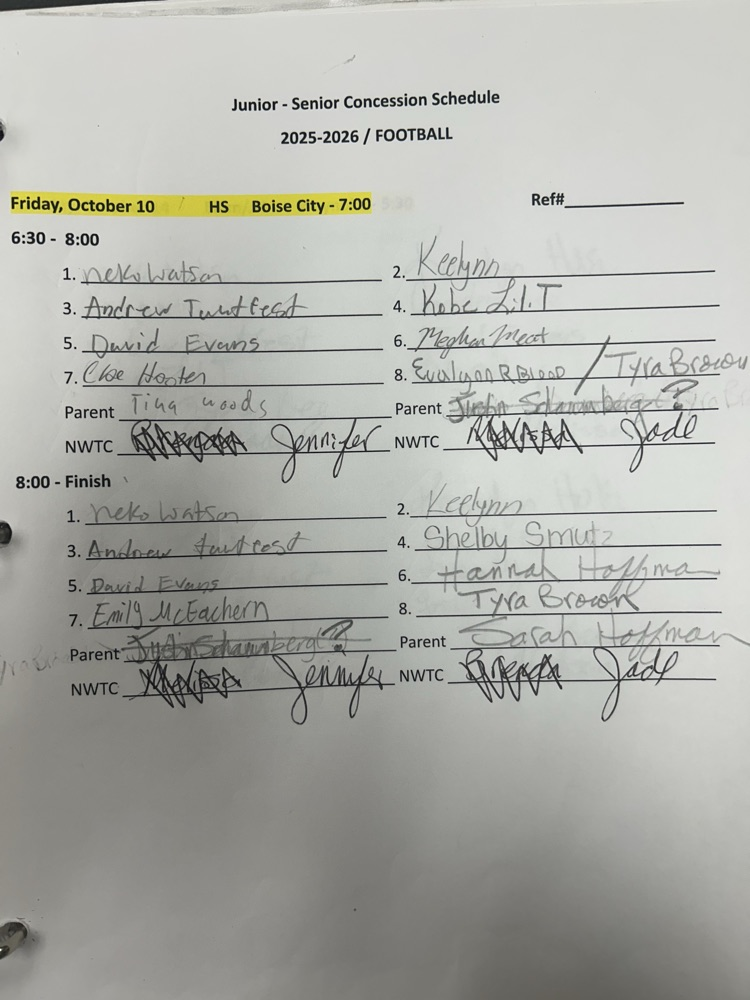 Junior - Senior Concession Schedule
2025-2026 / FOOTBALL
Friday, October 10 HS Boise City - 7:00 Ref#
6:30 - 8:00
1. neko Watson 2. Keelynn
3. Andrew Twitfest 4. Kobe Lil T
5. David Evans 6. Meghan Meat
7. Cloe Hooten 8. Evalynn R Blood / Tyra Brown
Parent Tina woods Parent ?
NWTC Jennifer NWTC Jade
8:00 - Finish
1. neko Watson 2. Keelynn
3. Andrew 4. Shelby Smutz
5. David Evans 6. Hannah Hoffman
7. Emily McEachern 8. Tyra Brown
Parent ? Parent Sarah Hoffman
NWTC Jennifer NWTC Jade